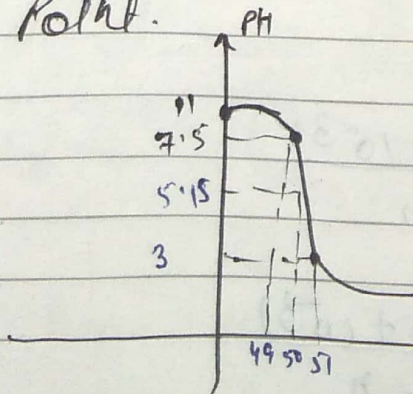 Point.
PH
11
7.5
5.15
3
49 50 51